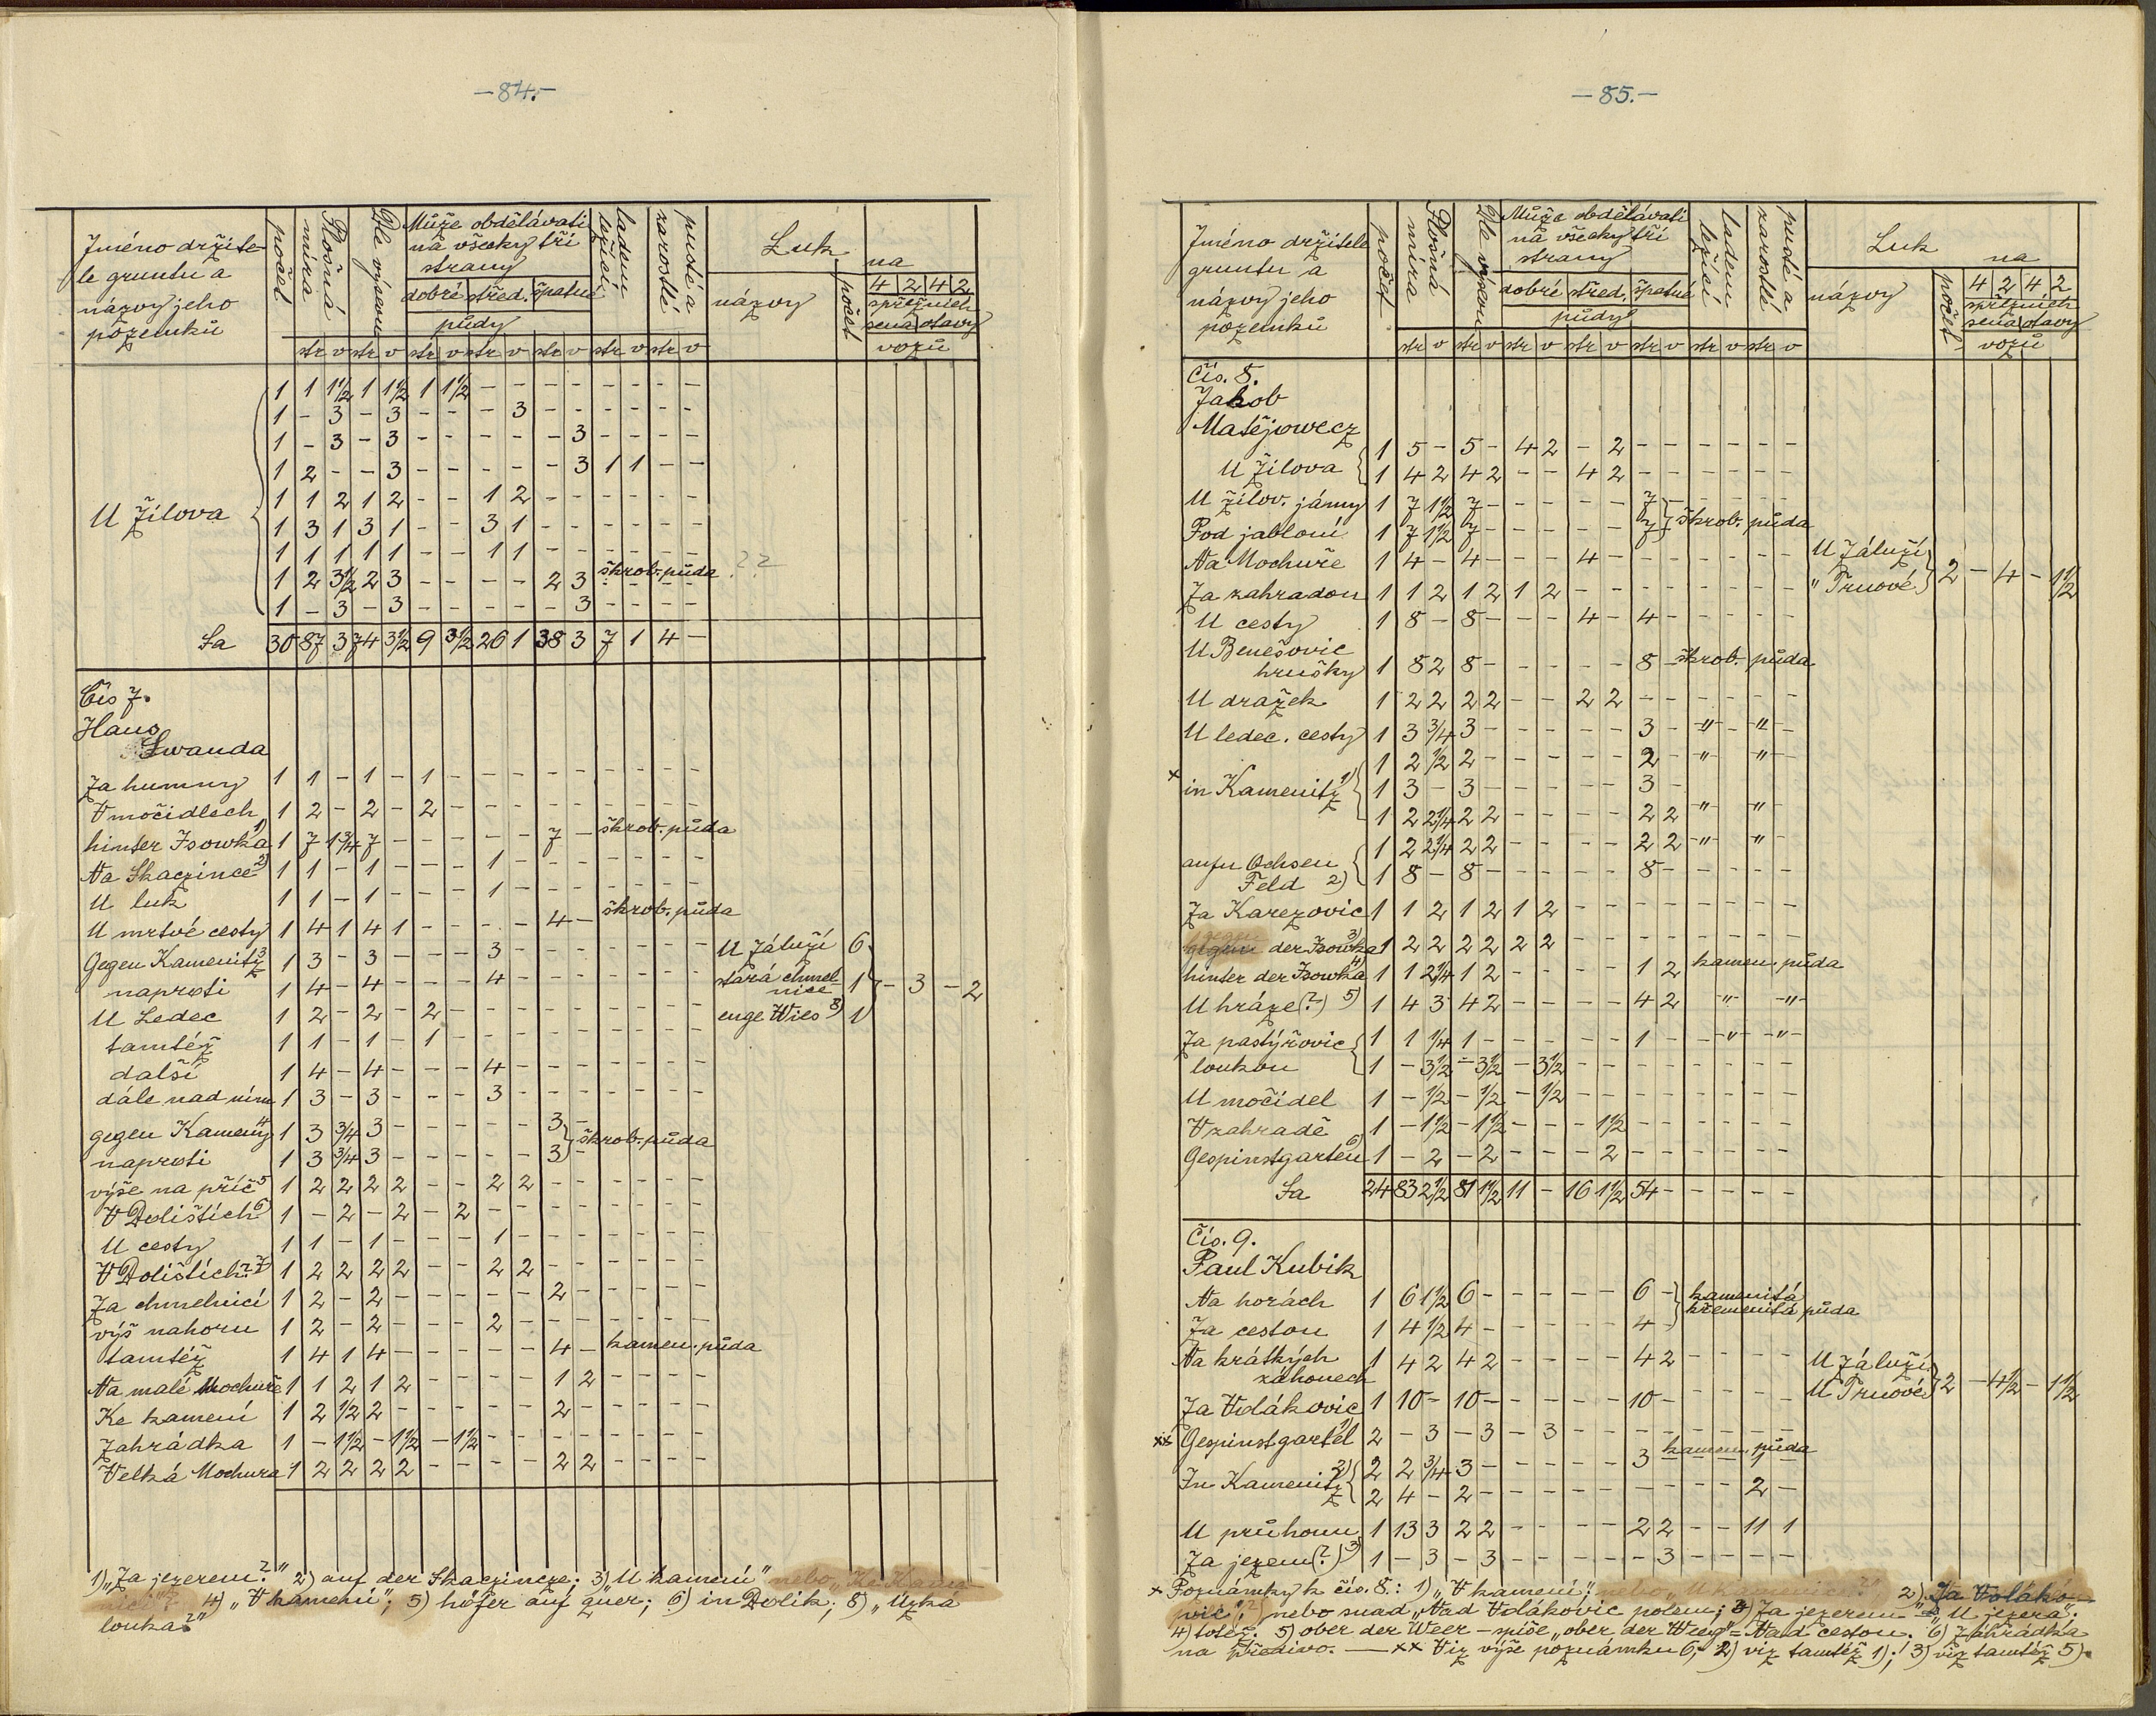 -84.-
Jméno držite-
le gruntu a
názvy jeho
pozemků
počet
Plošná
míra
Dle výsevu
Může obdělávati
na všecky tři
strany
dobré střed. špatné
půdy
ladem
ležící
pusté a
zarostlé
Luk
na
názvy
počet
4 2 4 2
spřežních
sena otavy
vozů
str v str v str v str v str v str v str v
U Žílova
1 1 1½ 1 1½ 1 1½ - - - - - - - -
1 - 3 - 3 - - - 3 - - - - - -
1 - 3 - 3 - - - - - 3 - - - -
1 2 - - 3 - - - - - 3 1 1 - -
1 1 2 1 2 - - 1 2 - - - - - -
1 3 1 3 1 - - 3 1 - - - - - -
1 1 1 1 1 - - 1 1 - - - - - -
1 2 3½ 2 3 - - - - 2 3 škrob. půda ??
1 - 3 - 3 - - - - - 3 - - - -
Sa 30 87 3 74 3½ 9 3½ 26 1 38 3 7 1 4 -
Čís 7.
Hans
Swanda
Za humny 1 1 - 1 - 1 - - - - - - - - -
V močidlech 1 2 - 2 - 2 - - - - - - - - -
hinter Isowka 1) 1 7 1¾ 7 - - - - - 7 - škrob. půda
Na Skaczince 2) 1 1 - 1 - - - 1 - - - - - - -
U luk 1 1 - 1 - - - 1 - - - - - - -
U mrtvé cesty 1 4 1 4 1 - - - - 4 - škrob. půda
Gegen Kamenitz 3 1 3 - 3 - - - 3 - - - - - - - U Záluží 6
naproti 1 4 - 4 - - - 4 - - - - - - - stará chmel-
nice 1 - 3 - 2
U Ledec 1 2 - 2 - 2 - - - - - - - - - enge Wies 8) 1
tamtéž 1 1 - 1 - 1 - - - - - - - - -
další 1 4 - 4 - - - 4 - - - - - - -
dále nad ním 1 3 - 3 - - - 3 - - - - - - -
gegen Kameny 4 1 3 ¾ 3 - - - - - 3 -
škrob. půda
naproti 1 3 ¾ 3 - - - - - 3 -
výše na příč 5 1 2 2 2 2 - - 2 2 - - - - - -
V Dolištích 6) 1 - 2 - 2 - 2 - - - - - - - -
U cesty 1 1 - 1 - - - 1 - - - - - - -
V Dolištích? 7 1 2 2 2 2 - - 2 2 - - - - - -
Za chmelnicí 1 2 - 2 - - - - - 2 - - - - -
výš nahoru 1 2 - 2 - - - 2 - - - - - - -
tamtéž 1 4 1 4 - - - - - 4 - kamen. půda
Na malé Mochuře 1 1 2 1 2 - - - - 1 2 - - - -
Ke kamení 1 2 ½ 2 - - - - - 2 - - - - -
Zahrádka 1 - 1½ - 1½ - 1½ - - - - - - - -
Velká Mochura 1 2 2 2 2 - - - - 2 2 - - - -
1) „Za jezerem?" 2) auf der Skaczincze; 3) U kamení" nebo „Ke Kame-
nici"? 4) „V kamení"; 5) höfer auf quer; 6) in Dolik; 8) „Úzká
louka?"
-85.-
Jméno držitele
gruntu a
názvy jeho
pozemků
počet
Plošná
míra
Dle výsevu
Může obdělávati
na všecky tři
strany
dobré střed. špatné
půdy
ladem
ležící
pusté a
zarostlé
Luk
na
názvy
počet
4 2 4 2
spřežních
sena otavy
vozů
str v str v str v str v str v str v str v
Čís. 8.
Jakob
Matějowecz
U Žílova 1 5 - 5 - 4 2 - 2 - - - - - -
1 4 2 4 2 - - 4 2 - - - - - -
U Žílov. jámy 1 7 1½ 7 - - - - - 7 - - - -
škrob. půda
Pod jabloní 1 7 1½ 7 - - - - - 7
Na Mochuře 1 4 - 4 - - - 4 - - - - - - - U Záluží
Za zahradou 1 1 2 1 2 1 2 - - - - - - - - " Trnové 2 - 4 - 1½
U cesty 1 8 - 8 - - - 4 - 4 - - - - -
U Benešovic
hrušky 1 8 2 8 - - - - - 8 - škrob. půda
U dražek 1 2 2 2 2 - - 2 2 - - - - - -
U ledec. cesty 1 3 ¾ 3 - - - - - 3 - -"- -"-
1 2 ½ 2 - - - - - 2 - " - " -
× in Kamenitz 1) 1 3 - 3 - - - - - 3 -
1 2 2¼ 2 2 - - - - 2 2 " - " -
aufn Ochsen 1 2 2¼ 2 2 - - - - 2 2 -"- "
Feld 2) 1 8 - 8 - - - - - 8 - - - - -
Za Karezovic 1 1 2 1 2 1 2 - - - - - - - -
gegen der Isowka 3) 1 2 2 2 2 2 2 - - - - - - - -
hinter der Isowka 4 1 1 2¼ 1 2 - - - - 1 2 kamen. půda
U hráze (?) 5) 1 4 3 4 2 - - - - 4 2 -"- -"-
Za pastýřovic 1 1 ¼ 1 - - - - - 1 - - " - " -
loukou 1 - 3½ - 3½ - 3½ - - - - - - - -
U močidel 1 - ½ - ½ - ½ - - - - - - - -
V zahradě 1 - 1½ - 1½ - - - 1½ - - - - - -
Gespinstgarten 6) 1 - 2 - 2 - - - 2 - - - - - -
Sa 24 83 2½ 81 1½ 11 - 16 1½ 54 - - - - -
Čís. 9.
Paul Kubik
Na horách 1 6 1½ 6 - - - - - 6 - kamenitá
křemenitá půda
Za cestou 1 4 ½ 4 - - - - - 4 -
Na krátkých
záhonech 1 4 2 4 2 - - - - 4 2 - - - - U Záluží
U Trnové 2 - 4½ - 1½
Za Vdákovic 1 10 - 10 - - - - - 10 - - - - -
×× Gespinstgartel 1) 2 - 3 - 3 - 3 - - - - - - - -
In Kamenitz 2) 2 2 ¾ 3 - - - - - 3 kamen. půda
2 4 - 2 - - - - - - - - - 2 -
U průhonu 1 13 3 2 2 - - - - 2 2 - - 11 1
Za jezem (?) 3) 1 - 3 - 3 - - - - - 3 - - - -
× Poznámky k čís. 8.: 1) „V kamení"; nebo „U kamenice?" 2) „Za Vdáko-
vic", nebo snad „Nad Vdákovic polem; 3) Za jezerem = „U jezera".
4) totéž. 5) ober der Weer - spíše „ober der Weeg" = Nad cestou. 6) Zahrádka
na předivo. — ×× Viz výše poznámku 6; 2) viz tamtéž 1); 3) viz tamtéž 5).